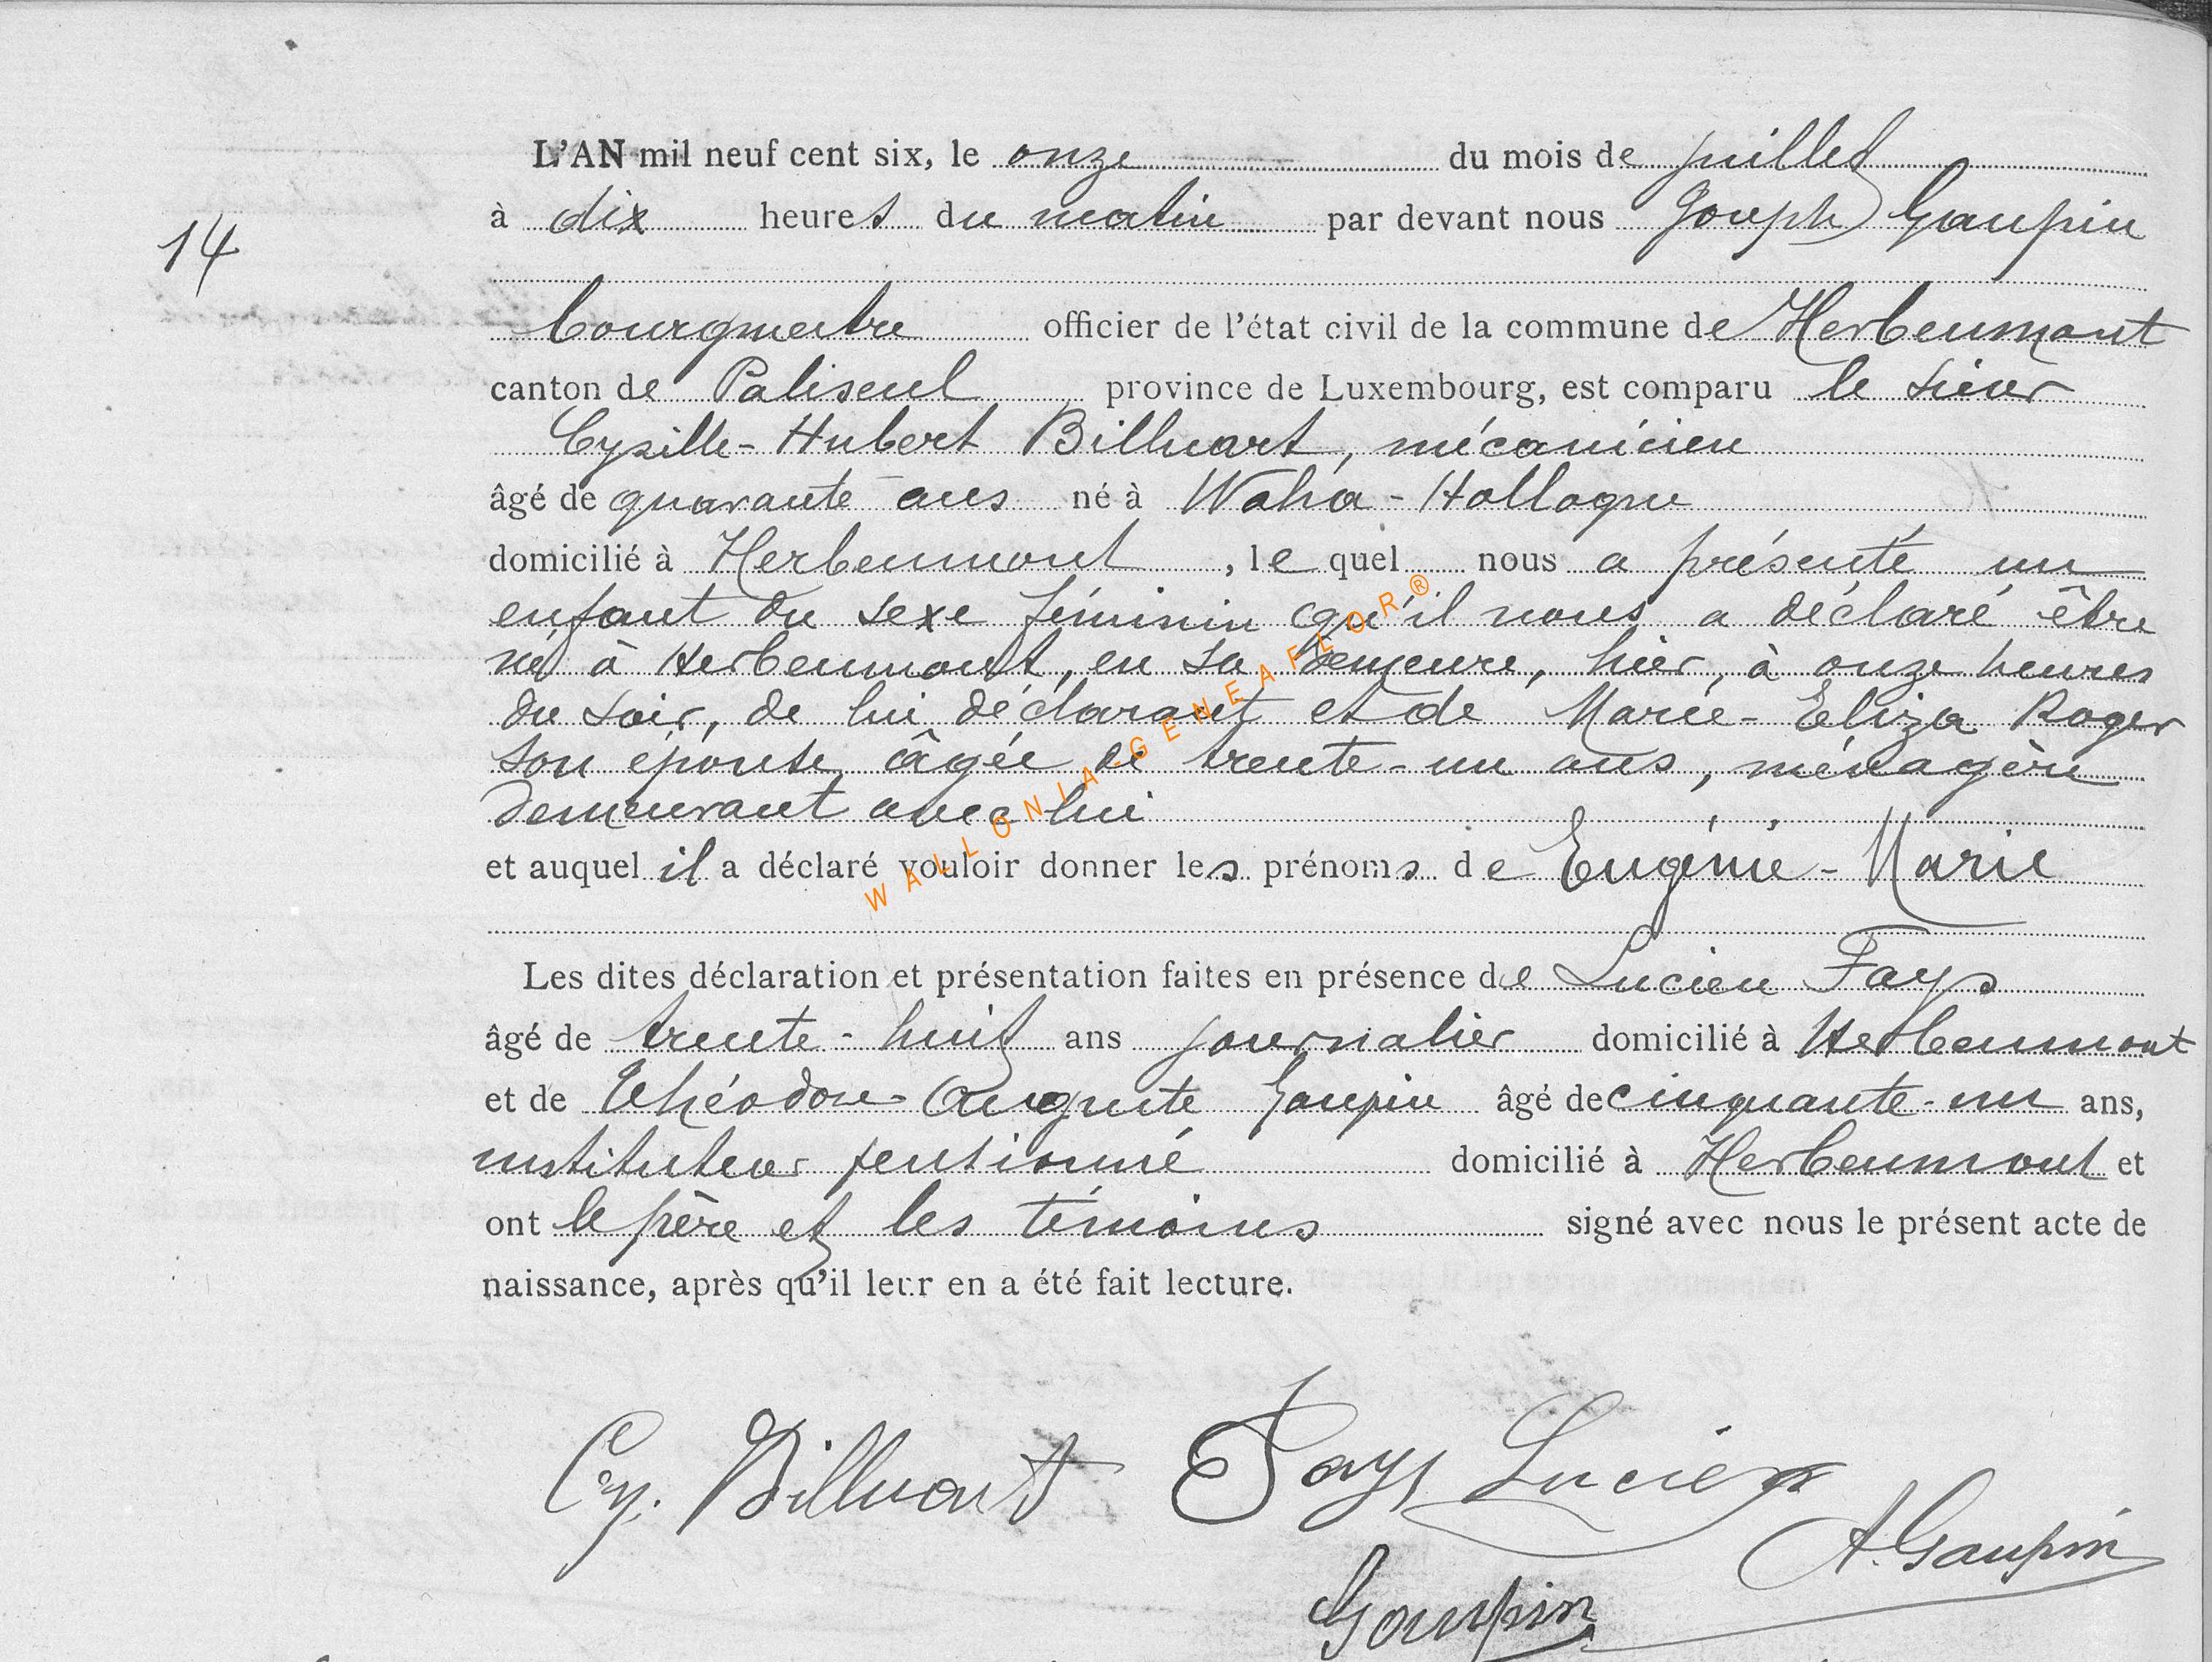 L'AN mil neuf cent six, le onze du mois de juillet
14
à dix heures du matin par devant nous Joseph Gaupin
bourgmestre officier de l'état civil de la commune de Herbeumont
canton de Paliseul province de Luxembourg, est comparu le sieur
Cyrille-Hubert Billuart, mécanicien
âgé de quarante ans né à Waha-Hollogne
domicilié à Herbeumont, lequel nous a présenté un
enfant du sexe féminin qu'il nous a déclaré être
né à Herbeumont, en sa demeure, hier, à onze heures
du soir, de lui déclarant et de Marie-Eliza Roger
son épouse, âgée de trente-un ans, ménagère
demeurant avec lui
et auquel il a déclaré vouloir donner les prénoms de Eugénie-Marie
WALLONIA-GENEAFLOR®
Les dites déclaration et présentation faites en présence de Lucien Fays
âgé de trente-huit ans journalier domicilié à Herbeumont
et de Théodore-Auguste Gaupin âgé de cinquante-un ans,
instituteur pensionné domicilié à Herbeumont et
ont le père et les témoins signé avec nous le présent acte de
naissance, après qu'il leur en a été fait lecture.
Cy. Billuart Fays Lucien
A. Gaupin
Gaupin